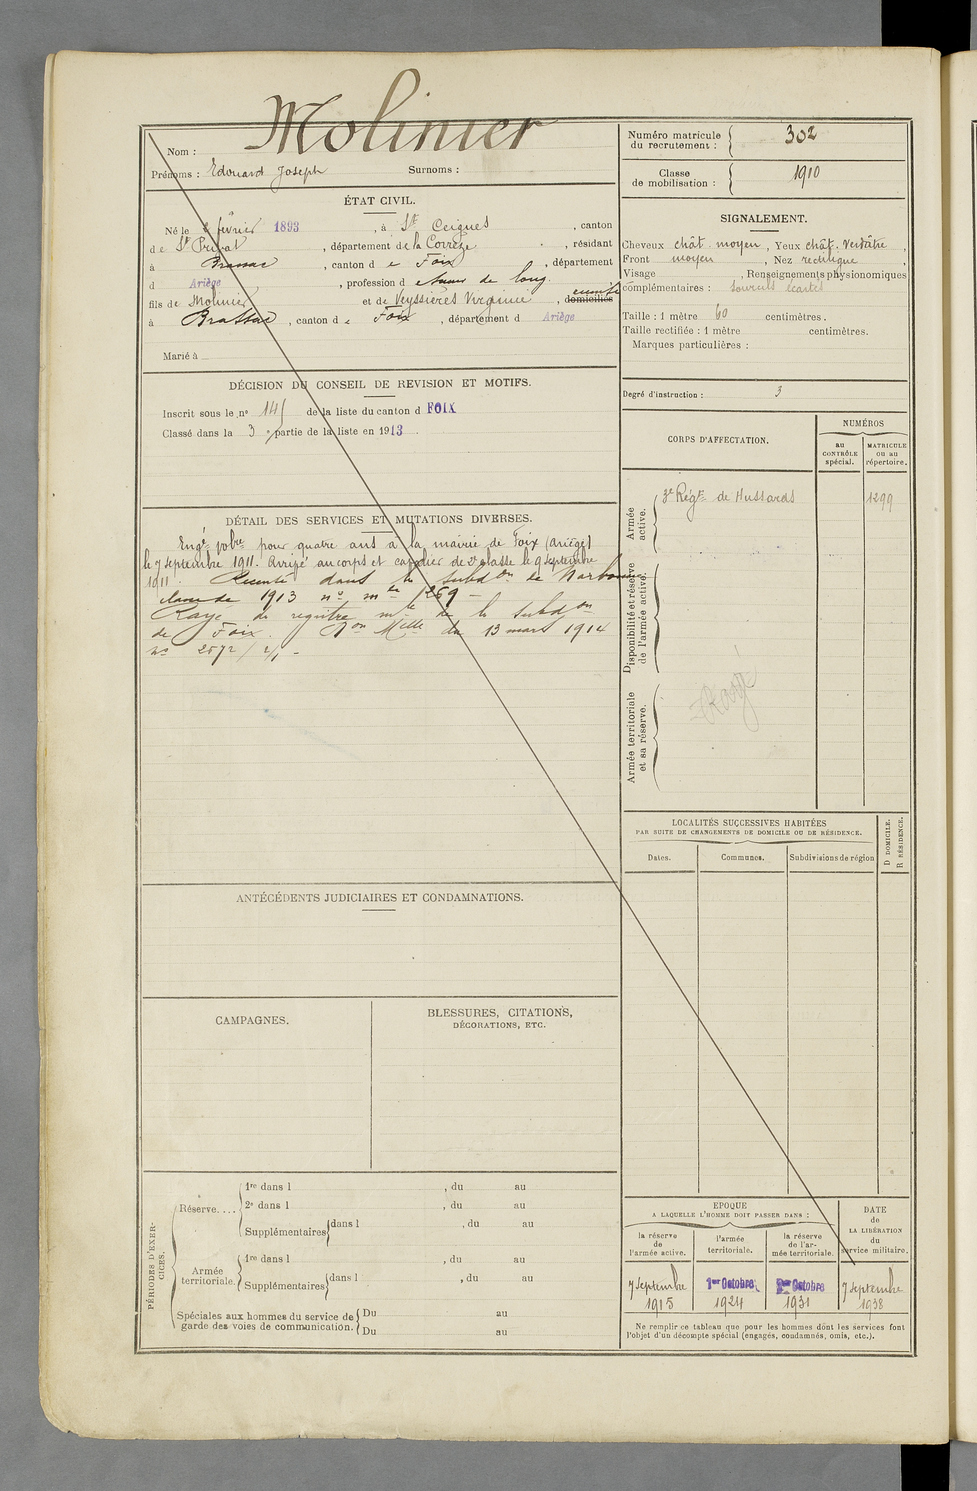 Molinier
Nom :
Prénoms : Edouard Joseph Surnoms :
ÉTAT CIVIL.
Né le février 1893, à St Ceignes, canton
de St Privat, département de la Corrèze, résidant
à Brassac, canton de Foix, département
d Ariège, profession d de long.
fils de Molinier et de Veyssières Virginie, domiciliés
à Brassac, canton de Foix, département d Ariège
Marié à
DÉCISION DU CONSEIL DE REVISION ET MOTIFS.
Inscrit sous le no 145 de la liste du canton d FOIX
Classé dans la 3e partie de la liste en 1913.
DÉTAIL DES SERVICES ET MUTATIONS DIVERSES.
Engé volre pour quatre ans à la mairie de Foix (Ariège)
le 7 septembre 1911. Arrivé au corps et cavalier de 2e classe le 9 septembre
1911. Recensé dans la subdon de Narbonne
classe de 1913 no mle 1269 -
Rayé du registre mle de la subdon
de Foix. Don Mlle du 13 mars 1914
no 2572/2/1 -
ANTÉCÉDENTS JUDICIAIRES ET CONDAMNATIONS.
CAMPAGNES.
BLESSURES, CITATIONS,
DÉCORATIONS, ETC.
PÉRIODES D'EXER-
CICES.
Réserve....
1re dans l , du au
2e dans l , du au
Supplémentaires dans l , du au
Armée
territoriale.
1re dans l , du au
Supplémentaires dans l , du au
Spéciales aux hommes du service de
garde des voies de communication.
Du au
Du au
Numéro matricule
du recrutement : 302
Classe
de mobilisation : 1910
SIGNALEMENT.
Cheveux chât. moyen, Yeux chât. verdâtre,
Front moyen, Nez rectiligne,
Visage , Renseignements physionomiques
complémentaires : sourcils écartés
Taille : 1 mètre 60 centimètres.
Taille rectifiée : 1 mètre centimètres.
Marques particulières :
Degré d'instruction : 3
CORPS D'AFFECTATION.
NUMÉROS
au
CONTRÔLE
spécial.
MATRICULE
OU AU
répertoire.
Armée
active.
3e Régt de Hussards 1299
Disponibilité et réserve
de l'armée active.
Armée territoriale
et sa réserve.
Rayé
LOCALITÉS SUCCESSIVES HABITÉES
PAR SUITE DE CHANGEMENTS DE DOMICILE OU DE RÉSIDENCE.
D DOMICILE.
R RÉSIDENCE.
Dates. Communes. Subdivisions de région
EPOQUE
A LAQUELLE L'HOMME DOIT PASSER DANS :
la réserve
de
l'armée active.
l'armée
territoriale.
la réserve
de l'ar-
mée territoriale.
DATE
de
LA LIBÉRATION
du
service militaire.
7 septembre
1915
1er Octobre
1924
1er Octobre
1931
7 septembre
1938
Ne remplir ce tableau que pour les hommes dont les services font
l'objet d'un décompte spécial (engagés, condamnés, omis, etc.).